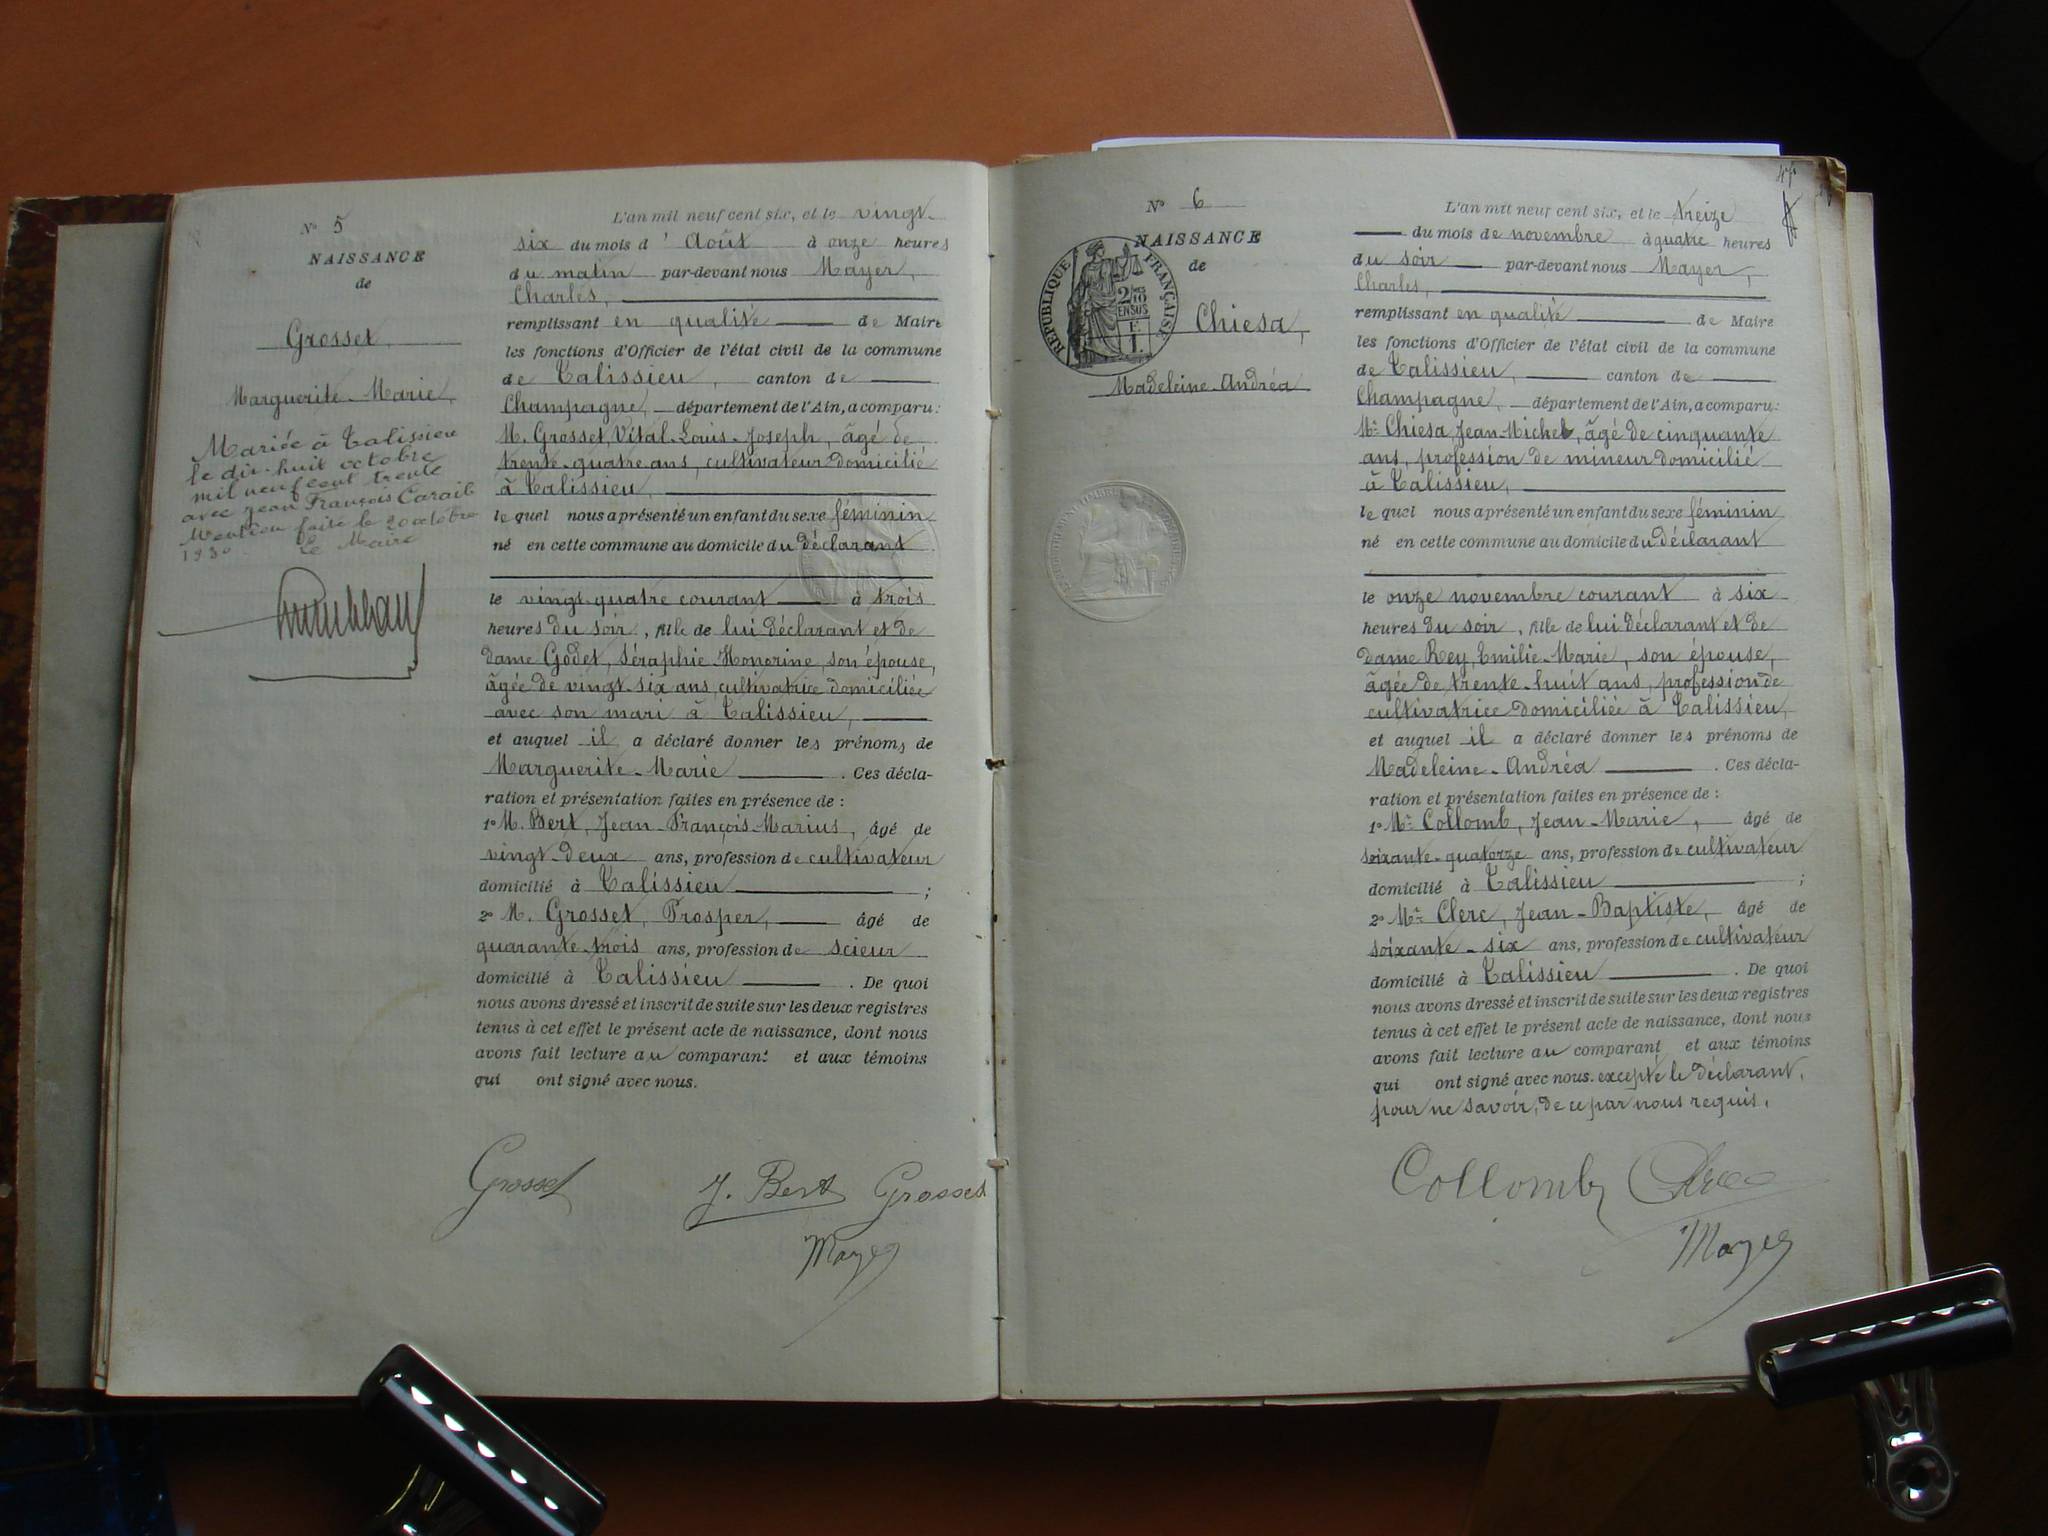 Nº 5
NAISSANCE
de
Grosset
Marguerite-Marie
Mariée à Talissieu
le dix-huit octobre
mil neuf cent trente
avec Jean François Carait
Mention faite le 20 octobre
1930 Le Maire
L'an mil neuf cent six, et le vingt-
six du mois d'Août à onze heures
du matin par-devant nous Mayer,
Charles,
remplissant en qualité de Maire
les fonctions d'Officier de l'état civil de la commune
de Talissieu, canton de
Champagne, département de l'Ain, a comparu:
M. Grosset, Vital-Louis-Joseph, âgé de
trente-quatre ans, cultivateur domicilié
à Talissieu,
lequel nous a présenté un enfant du sexe féminin
né en cette commune au domicile du déclarant
le vingt-quatre courant à trois
heures du soir, fille de lui déclarant et de
dame Godet, Séraphie-Honorine, son épouse,
âgée de vingt-six ans, cultivatrice domiciliée
avec son mari à Talissieu,
et auquel il a déclaré donner les prénoms de
Marguerite-Marie. Ces décla-
ration et présentation faites en présence de :
1º M. Bert, Jean-François-Marius, âgé de
vingt-deux ans, profession de cultivateur
domicilié à Talissieu ;
2º M. Grosset, Prosper, âgé de
quarante-trois ans, profession de scieur
domicilié à Talissieu. De quoi
nous avons dressé et inscrit de suite sur les deux registres
tenus à cet effet le présent acte de naissance, dont nous
avons fait lecture au comparant et aux témoins
qui ont signé avec nous.
Grosset J. Bert Grosset
Mayer
47
Nº 6
NAISSANCE
de
RÉPUBLIQUE FRANÇAISE
2/10
EN SUS
1 F.
Chiesa,
Madeleine-Andréa
L'an mil neuf cent six, et le treize
du mois de novembre à quatre heures
du soir par-devant nous Mayer,
Charles,
remplissant en qualité de Maire
les fonctions d'Officier de l'état civil de la commune
de Talissieu, canton de
Champagne, département de l'Ain, a comparu:
Mr Chiesa, Jean-Michel, âgé de cinquante
ans, profession de mineur domicilié
à Talissieu,
lequel nous a présenté un enfant du sexe féminin
né en cette commune au domicile du déclarant
le onze novembre courant à six
heures du soir, fille de lui déclarant et de
dame Rey, Emilie-Marie, son épouse,
âgée de trente-huit ans, profession de
cultivatrice domiciliée à Talissieu,
et auquel il a déclaré donner les prénoms de
Madeleine-Andréa. Ces décla-
ration et présentation faites en présence de :
1º Mr Collomb, Jean-Marie, âgé de
soixante-quatorze ans, profession de cultivateur
domicilié à Talissieu ;
2º Mr Clerc, Jean-Baptiste, âgé de
soixante-six ans, profession de cultivateur
domicilié à Talissieu. De quoi
nous avons dressé et inscrit de suite sur les deux registres
tenus à cet effet le présent acte de naissance, dont nous
avons fait lecture au comparant et aux témoins
qui ont signé avec nous. excepté le déclarant,
pour ne savoir, de ce par nous requis.
Collomb Clerc
Mayer